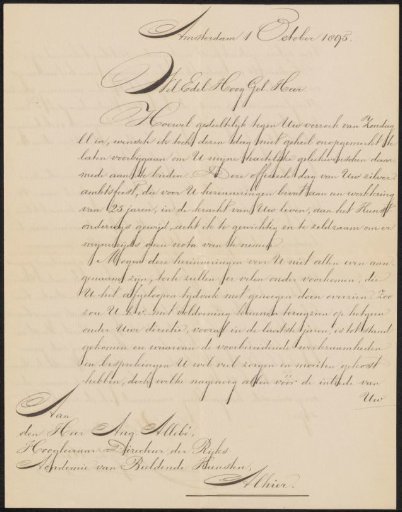 Amsterdam 1 October 1895
Wel Edel Hoog Gel. Heer
Hoewel gedeeltelijk tegen Uw verzoek van Zondag
ll. in, wensch ik toch dezen dag niet geheel onopgemerkt te
laten voorbijgaan om U mijne hartelijke gelukwenschen daar
mede aan te bieden. Deze officieele dag van Uw zilveren
ambtsfeest, die voor U herinneringen bevat aan een werkkring
van 25 jaren, in de kracht van Uw leven, aan het Kunst
onderwijs gewijd, acht ik te gewichtig en te zeldzaam om er
mijnerzijds geen nota van te nemen
Mogen deze herinneringen voor U niet allen even aan
genaam zijn, toch zullen er velen onder voorkomen, die
U het afgeloopen tijdvak met genoegen doen overzien. Zoo
zou U b.v. met voldoening kunnen terugzien op hetgeen
onder Uwe directie, vooral in de laatste jaren, is tot stand
gekomen en waarvan de voorbereidende werkzaamheden
en besprekingen U wel veel zorgen en moeiten gekost
hebben, doch welke nagenoeg allen vóór de intrede van
Uw
Aan
den Heer Aug. Allebé,
Hoogleeraar-Directeur der Rijks
Academie van Beeldende Kunsten,
Alhier.